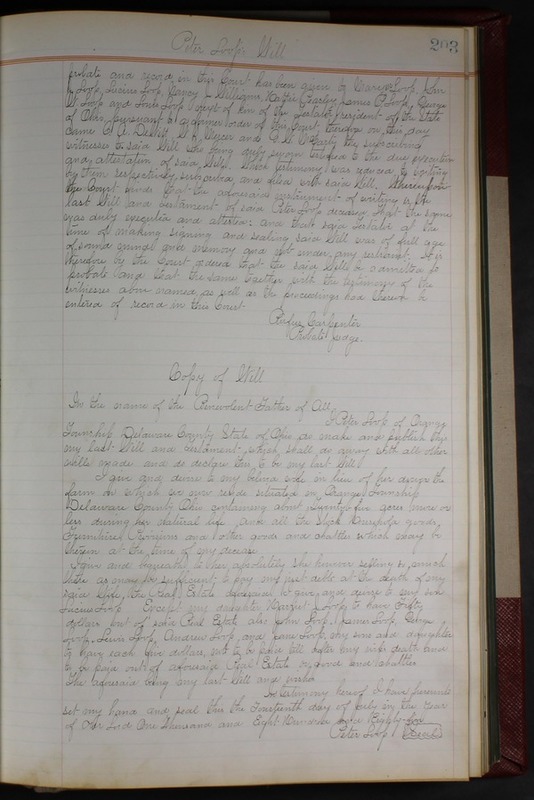 Peter Loop's Will
203
probate and record in this Court has been given to
Loop, Lucius Loop, Nancy L. Williams, James P. Loop, George
W. Loop and Loop next of kin of the Testator resident of the State
of Ohio, pursuant to a former order of this Court, therefore on this day
came and the subscribing
witnesses to said Will who being duly sworn testified to the due execution
and attestation of said Will. Which testimony was reduced to writing
by them respectively subscribed and filed with said Will. Whereupon
the Court finds that the aforesaid instrument of writing is the
last Will and testament of said Peter Loop deceased that the same
was duly executed and attested: and that said Testator at the
time of making signing and sealing said Will was of full age
of sound mind and memory and not under any restraint. It is
therefore by the Court ordered that the said Will be admitted to
probate and that the same together with the testimony of the
witnesses above named as well as the proceedings had therein be
entered of record in this Court.
Rufus Carpenter
Probate Judge.
Copy of Will
In the name of the Benevolent Father of All,
I Peter Loop of Orange
Township Delaware County State of Ohio do make and publish this
my last Will and testament which shall do away with all other
wills made and do declare this to be my last Will
I give and devise to my beloved wife in lieu of her dower the
farm on which we now reside situated in Orange Township
Delaware County Ohio containing about Twenty five acres more or
less during her natural life and all the Stock Household goods
Furniture Provisions and other goods and chattles which may be
therein at the time of my decease
I give and bequeath to her absolutely she however selling so much
there as may be sufficient to pay my just debts at the death of my
said Wife, the Real Estate aforesaid I give and devise to my son
Lucius Loop Except my daughter Harriet Loop to have Fifty
dollars out of said Real Estate also John Loop, James Loop, George
Loop, Lewis Loop, Andrew Loop, and Jane Loop my sons and daughter
to have each five dollars, not to be paid till after my wife death and
to be paid out of aforesaid Real Estate or goods and chattles
The aforesaid being my last Will and
In testimony hereof I have hereunto
set my hand and seal this the Fourteenth day of July in the Year
of Our Lord One Thousand and Eight Hundred and
Peter Loop (Seal)